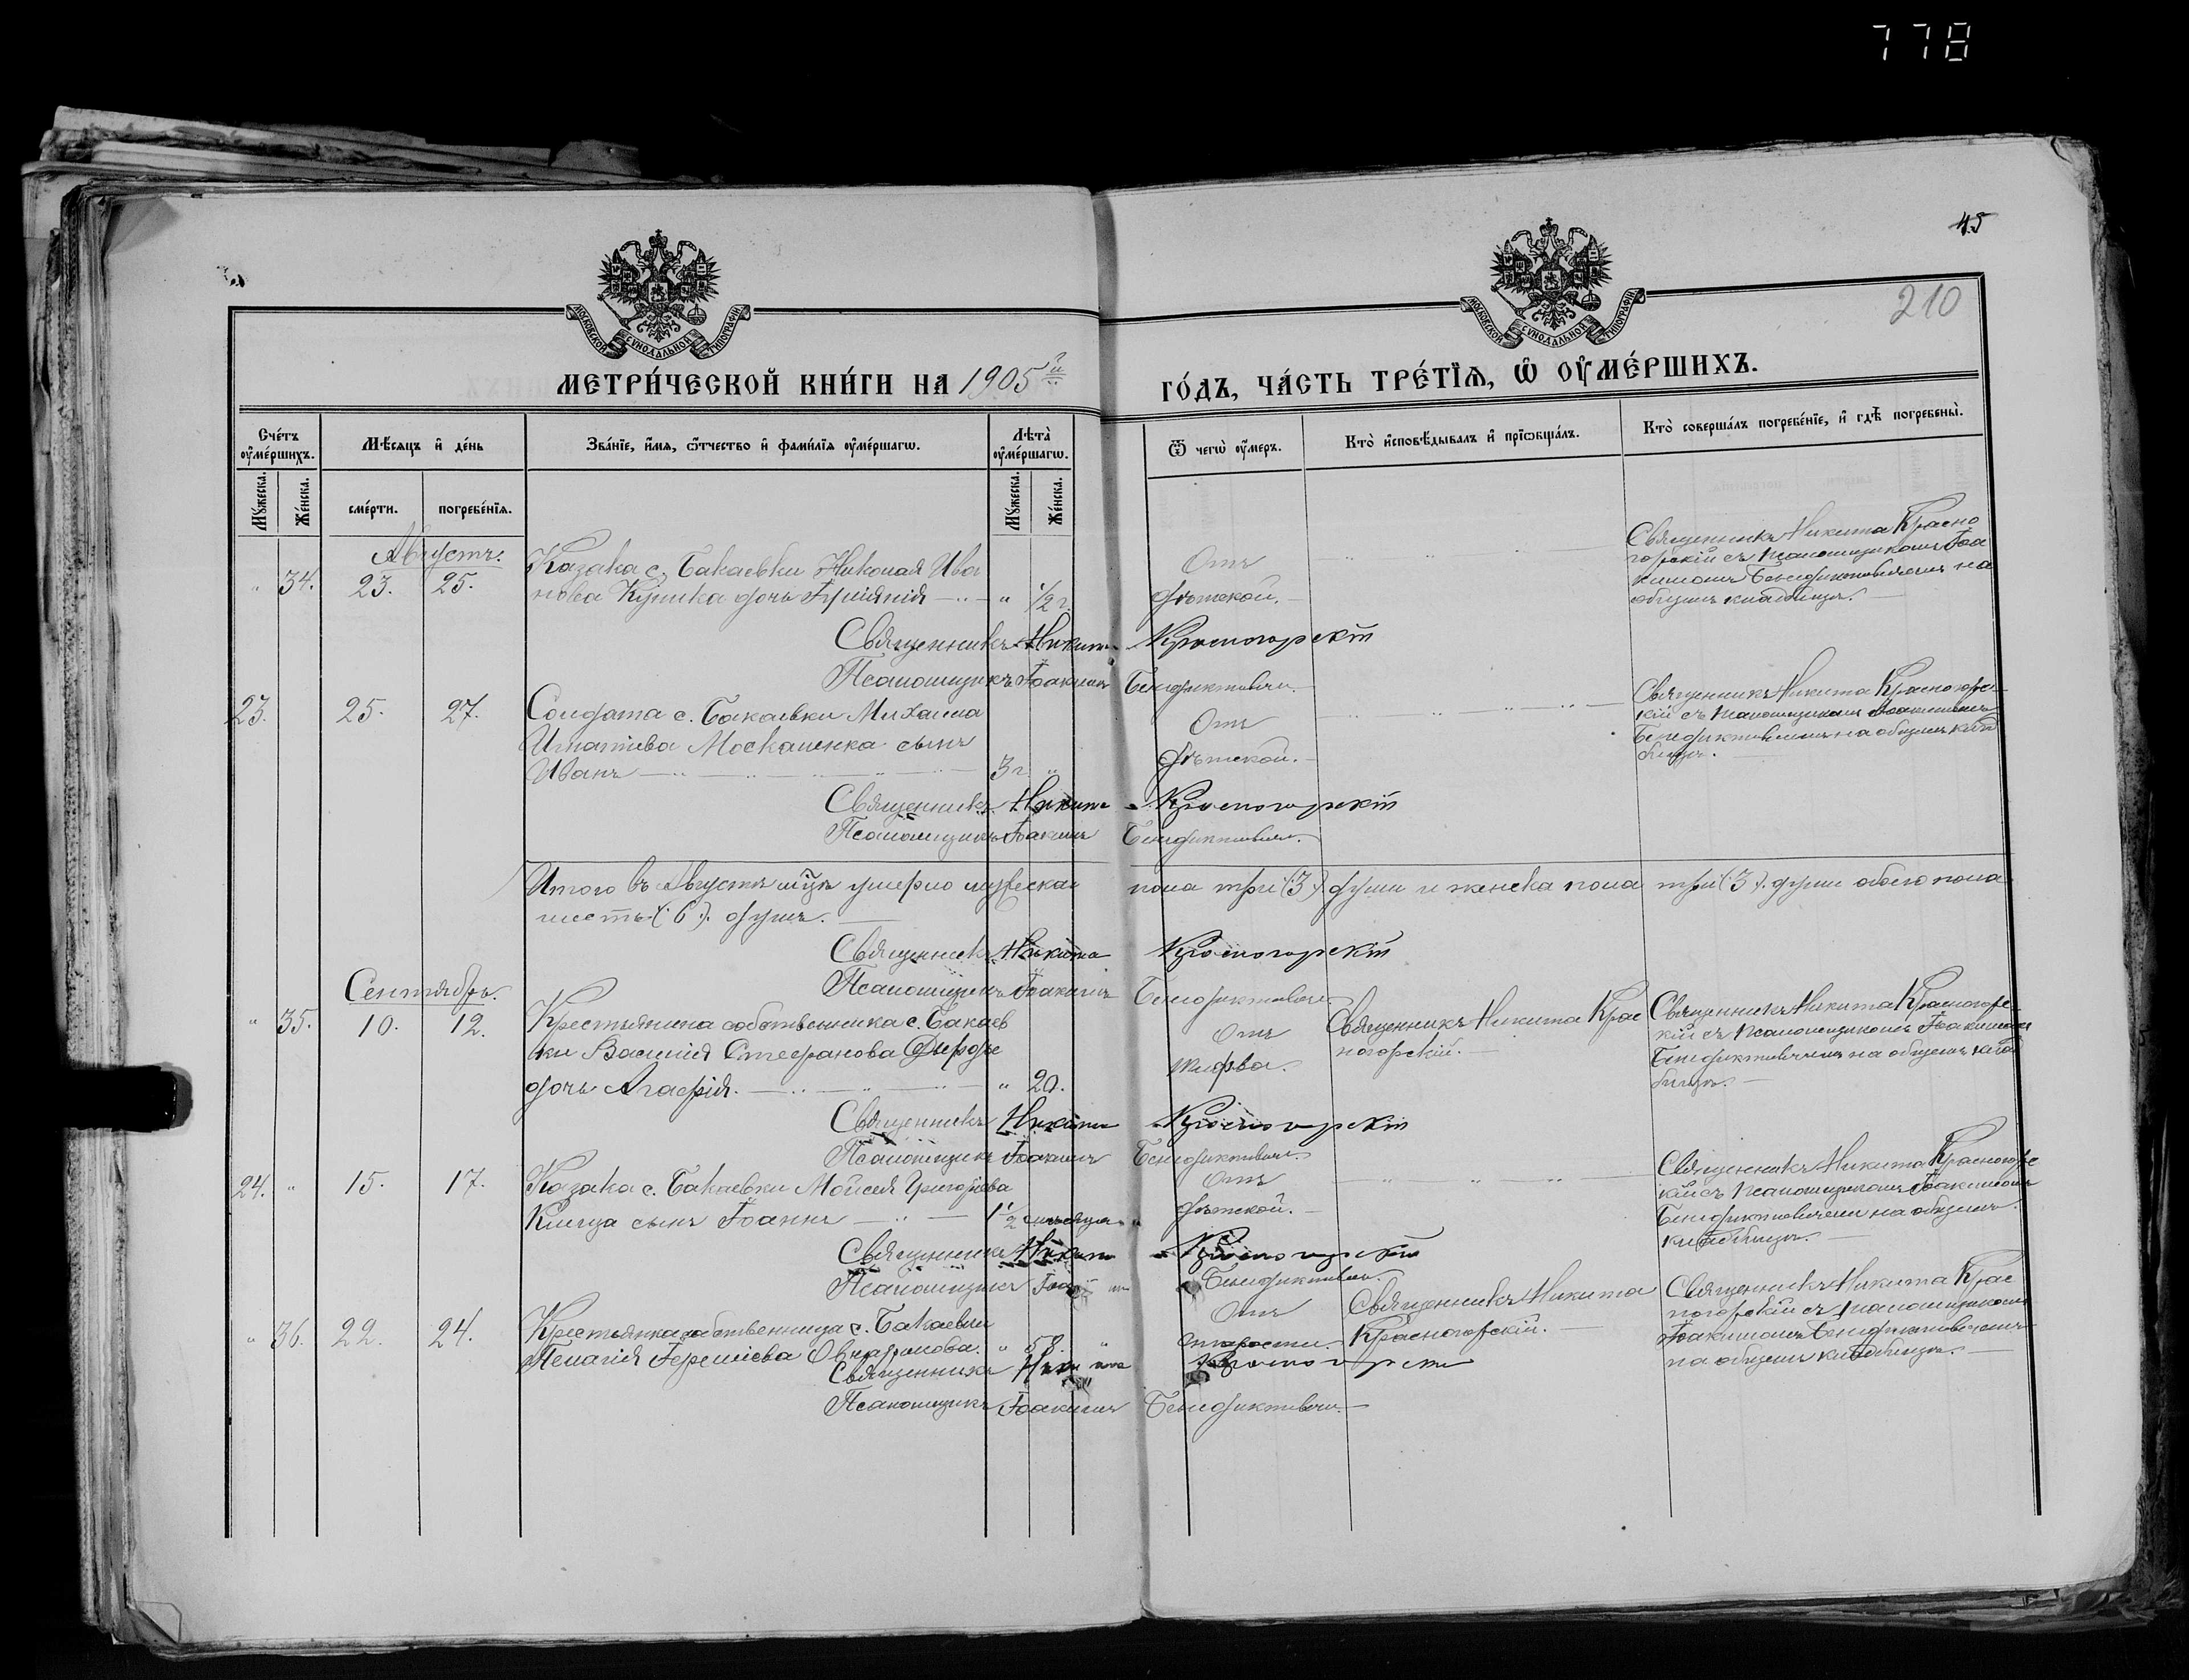 778
45
210
МОСКОВСКОЙ СѴНОДАЛЬНОЙ ТИПОГРАФІИ
МОСКОВСКОЙ СѴНОДАЛЬНОЙ ТИПОГРАФІИ
МЕТРИ́ЧЕСКОЙ КНИ́ГИ НА 1905й
ГО́ДЪ, ЧА́СТЬ ТРЕ́ТЇѦ, Ѡ҆ ОУ҆МЕ́РШИХЪ.
Сче́тъ оу҆ме́ршихъ.
Мѣ́сѧцъ и҆ де́нь
Зва́нїе, и҆́мѧ, ѻ҆́тчество и҆ фами́лїѧ оу҆ме́ршагѡ.
Лѣта̀ оу҆ме́ршагѡ.
Ѿ чегѡ̀ оу҆́меръ.
Кто̀ и҆сповѣ́дывалъ и҆ прїѡбща́лъ.
Кто̀ соверша́лъ погребе́нїе, и҆ гдѣ̀ погребены̀.
Мꙋ́жеска.
Же́нска.
сме́рти.
погребе́нїѧ.
Мꙋ́жеска.
Же́нска.
Августъ.
" 34. 23. 25. Казака с. Бакаевки Николая Ива
нова дочь " 1/2 г.
Отъ
дѣтской.
Священникъ Никита Красно
горскій съ псаломщикомъ Іоа
кимомъ Бенедиктовичемъ на
общемъ кладбищѣ.
Священникъ Никита Красногорскій
Псаломщикъ Іоакимъ Бенедиктовичъ.
23. 25. 27. Солдата с. Бакаевки Михаила
Игнатіева Москаленка сынъ
Иванъ 3 г. "
Отъ
дѣтской.
Священникъ Никита Красногорс
кій съ псаломщикомъ Іоакимомъ
Бенедиктовичемъ на общемъ клад
бищѣ.
Священникъ Никита Красногорскій
Псаломщикъ Іоакимъ Бенедиктовичъ.
Итого въ Августѣ м̃цѣ умерло мужеска пола три (3) души и женска пола три (3) души обоего пола
шесть (6) душъ.
Священникъ Никита Красногорскій
Псаломщикъ Іоакимъ Бенедиктовичъ.
Сентябрь.
" 35. 10. 12. Крестьянина собственника с. Бакаев
ки Василія Стефанова
дочь Агафія. " 20.
Отъ
тифа.
Священникъ Никита Крас
ногорскій.
Священникъ Никита Красногорс
кій съ псаломщикомъ Іоакимомъ
Бенедиктовичемъ на общемъ клад
бищѣ.
Священникъ Никита Красногорскій
Псаломщикъ Іоакимъ Бенедиктовичъ.
24. " 15. 17. Казака с. Бакаевки Моисея Григоріева
сынъ Іоаннъ 1 1/2 мѣсяца "
Отъ
дѣтской.
Священникъ Никита Красногорс
кій съ псаломщикомъ Іоакимомъ
Бенедиктовичемъ на общемъ
кладбищѣ.
Священникъ Никита Красногорскій
Псаломщикъ Бенедиктовичъ.
" 36. 22. 24. Крестьянка собственница с. Бакаевки
Пелагія Іереміева " 58.
Отъ
старости.
Священникъ Никита
Красногорскій.
Священникъ Никита Крас
ногорскій съ псаломщикомъ
Іоакимомъ Бенедиктовичемъ
на общемъ кладбищѣ.
Священникъ Никита Красногорскій
Псаломщикъ Іоакимъ Бенедиктовичъ.